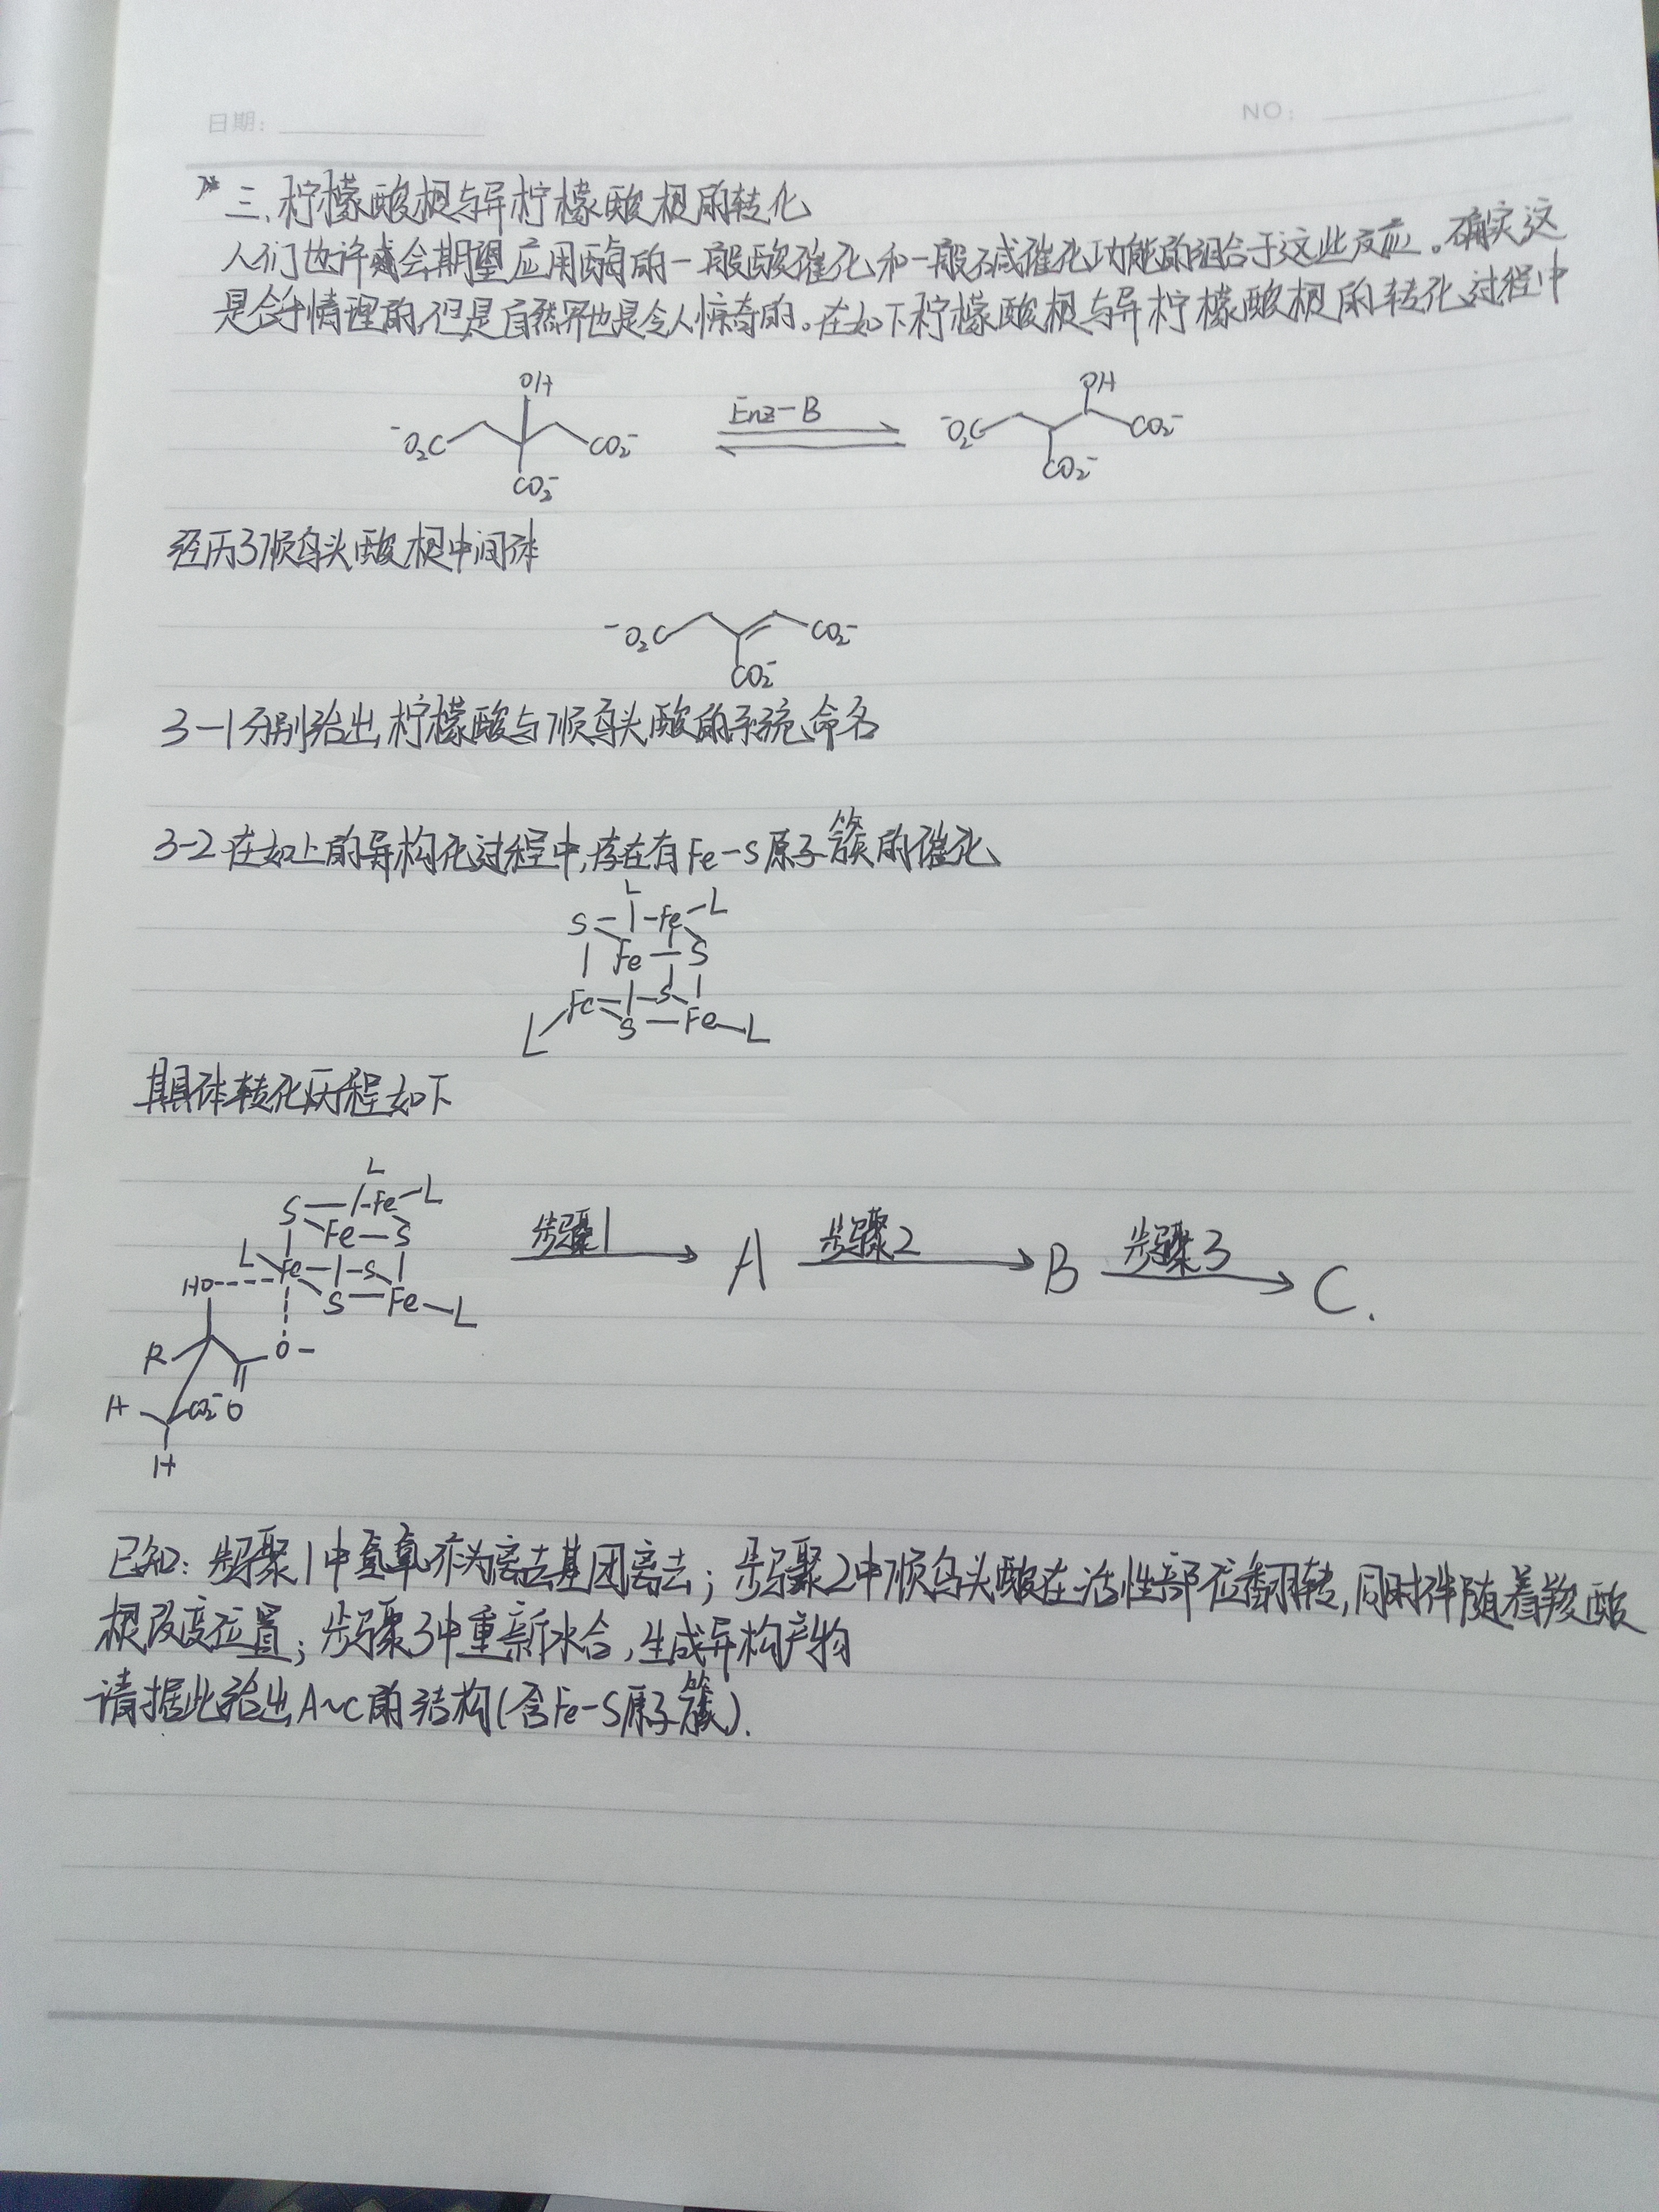 日期：
NO：
三、柠檬酸根与异柠檬酸根的转化
人们也许会期望应用酶的一般酸催化和一般碱催化功能的组合于这些反应。确实这
是合乎情理的,但是自然界也是令人惊奇的。在如下柠檬酸根与异柠檬酸根的转化过程中
OH
⁻O₂C
CO₂⁻
CO₂⁻
Enz-B
OH
⁻O₂C
CO₂⁻
CO₂⁻
经历了顺乌头酸根中间体
⁻O₂C
CO₂⁻
CO₂⁻
3-1 分别给出柠檬酸与顺乌头酸的系统命名
3-2 在如上的异构化过程中,存在有Fe-S原子簇的催化
L
S Fe-L
Fe-S
Fe S
L S-Fe-L
具体转化历程如下
L
S Fe-L
Fe-S
L Fe S
HO S-Fe-L
步骤1
A
步骤2
B
步骤3
C.
R O-
H CO₂⁻ O
H
已知：步骤1中氢氧亦为离去基团离去；步骤2中顺乌头酸在活性部位翻转,同时伴随着羧酸
根改变位置；步骤3中重新水合,生成异构产物
请据此给出A~C的结构(含Fe-S原子簇).